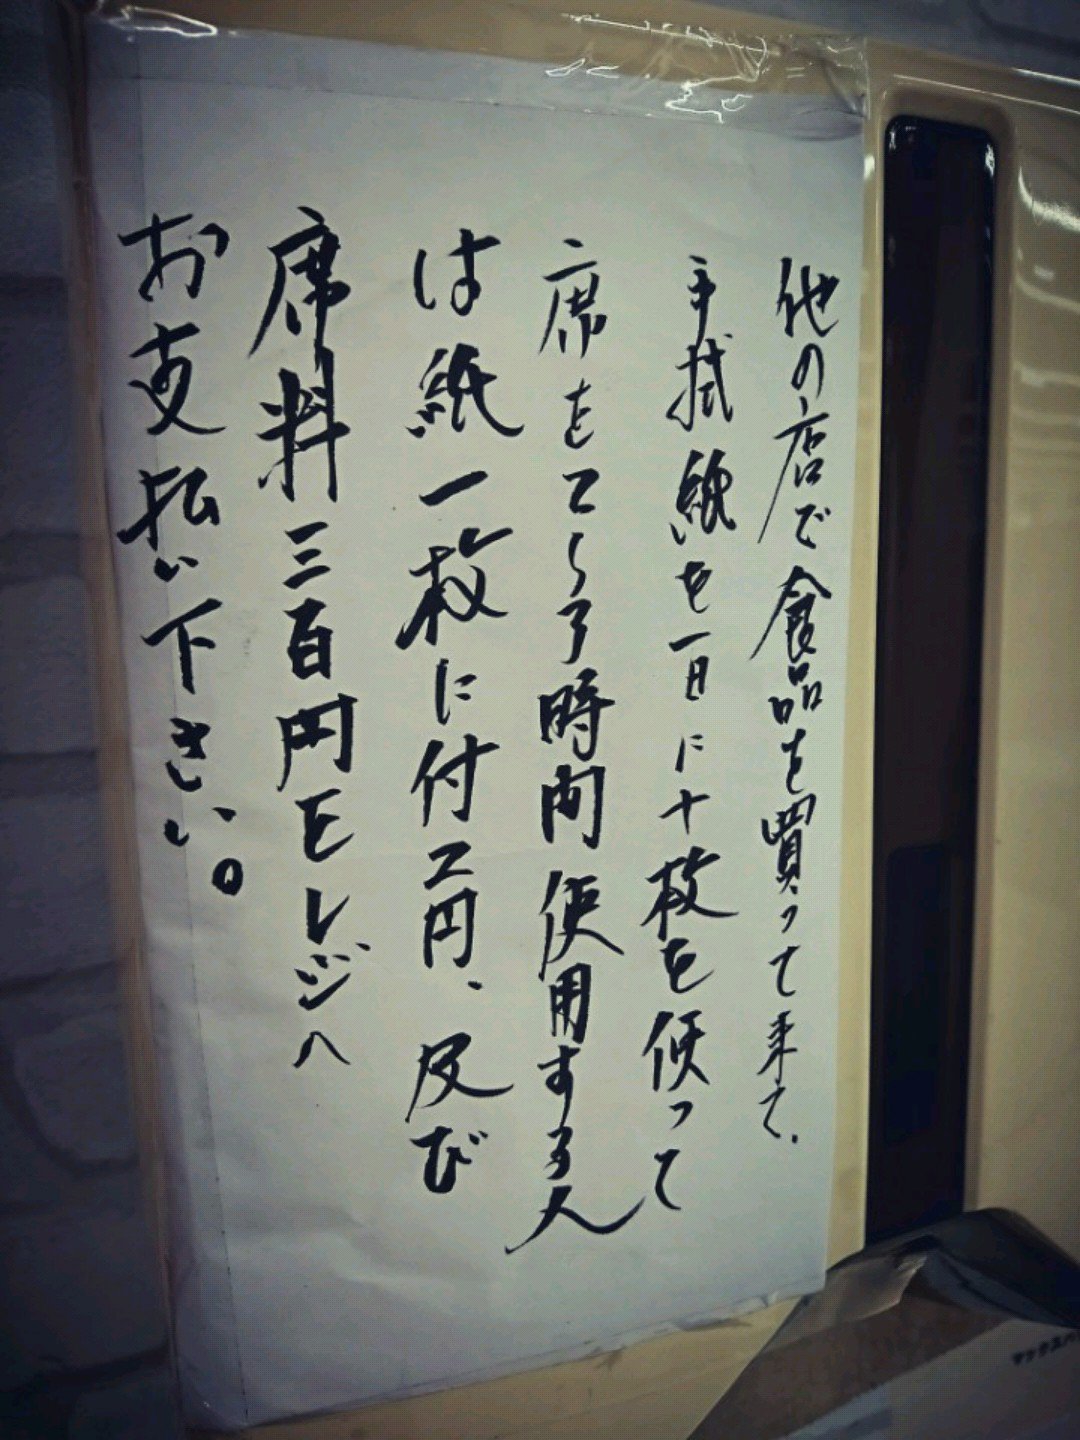 他の店で食品を買って来て、
手拭紙を一日に十枚を使って
席をて2〜3時間使用する人
は紙一枚に付2円、及び
席料三百円をレジへ
お支払い下さい。